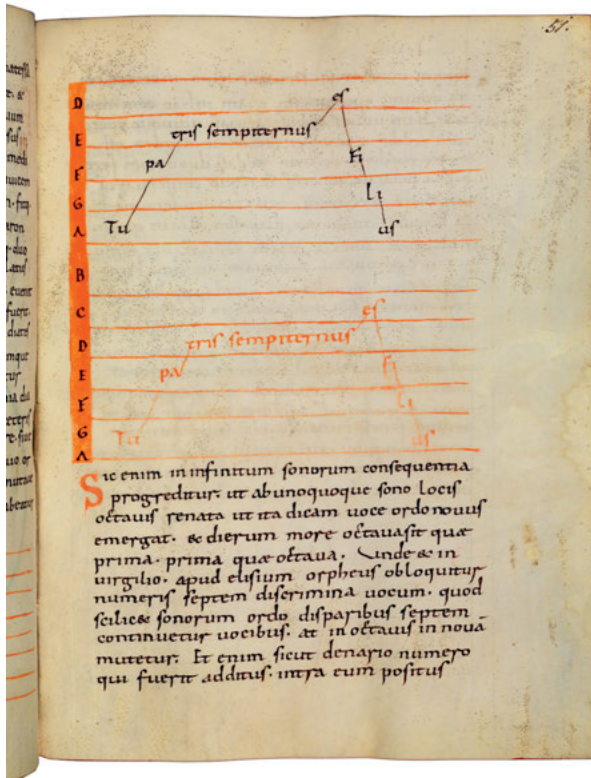 51.
D
es
E
tris sempiternus
pa
Fi
F
li
G
Tu
us
A
B
C
es
D
tris sempiternus
E
pa
fi
F
li
G
Tu
us
A
Sic enim in infinitum sonorum consequentia
progreditur. ut ab unoquoque sono locis
octauis renata ut ita dicam uoce ordo nouus
emergat. & dierum more octaua sit quae
prima. prima quae octaua. Unde & in
uirgilio. apud elisium orpheus obloquitur
numeris septem discrimina uocum. quod
scilic& sonorum ordo disparibus septem
continuetur uocibus. at in octauis in nouā
mutetur. Et enim sicut denario numero
qui fuerit additus. intra eum positus